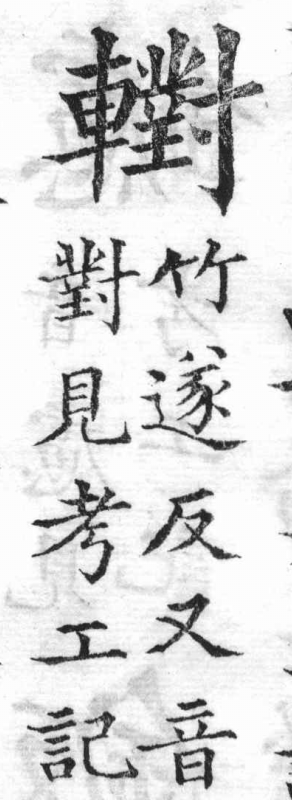 轛
竹遂反又音
對見考工記